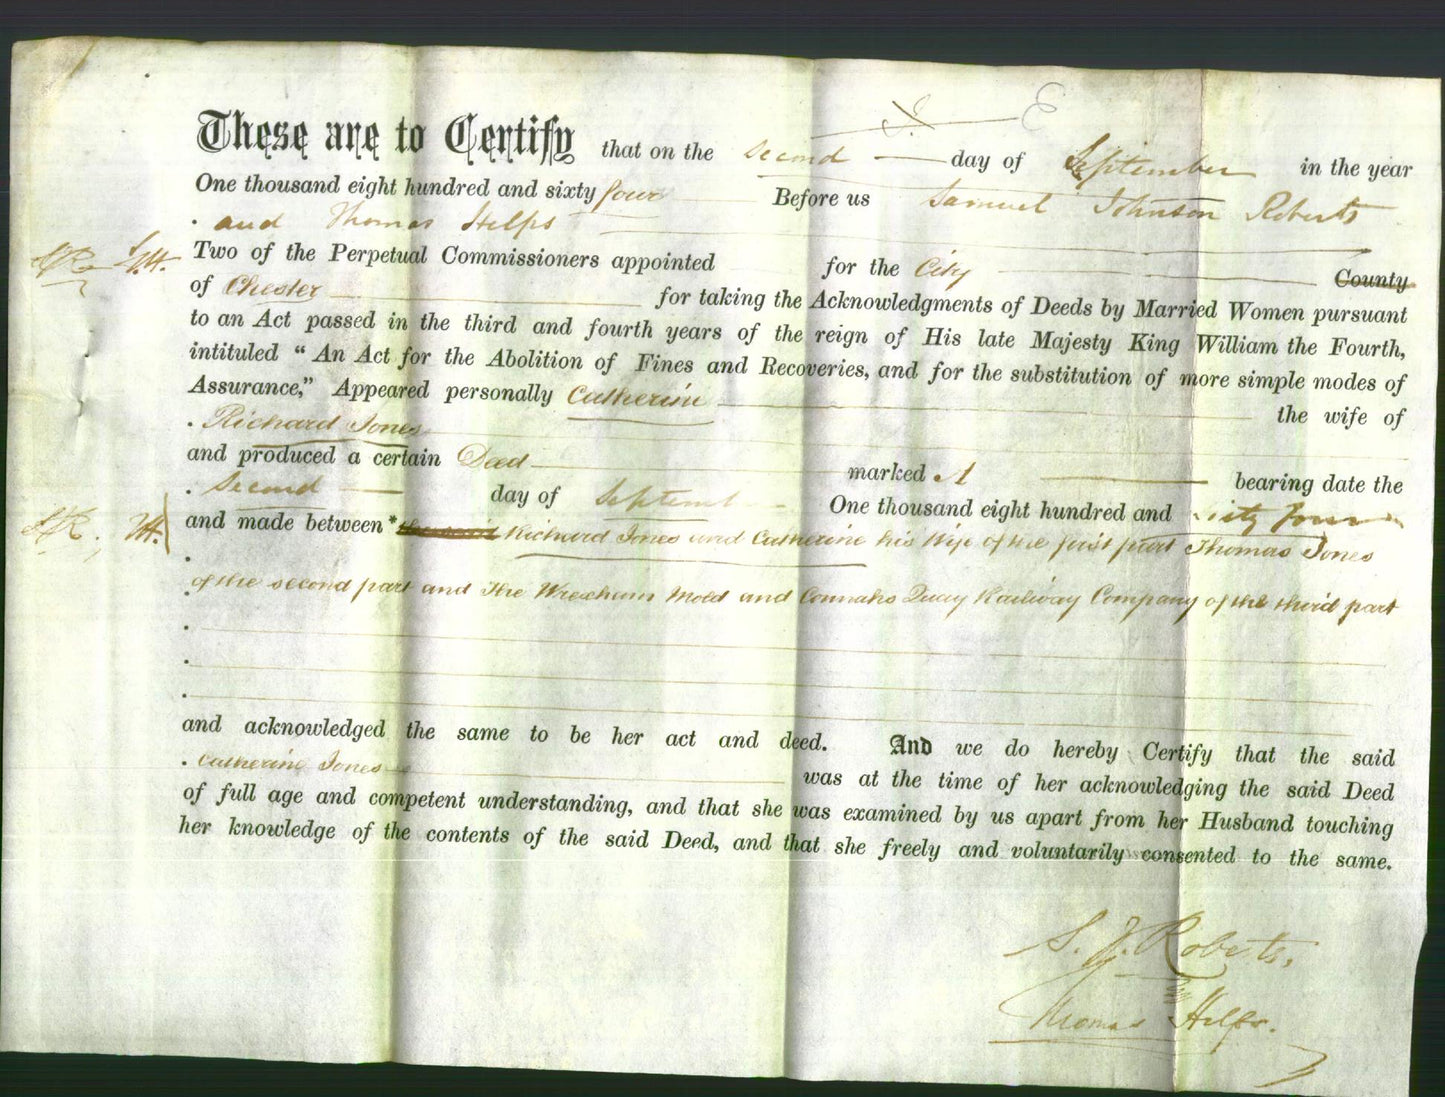 J. E
These are to Certify that on the second day of September in the year
One thousand eight hundred and sixty four Before us Samuel Johnson Roberts
and Thomas Helps
SJR T.H. Two of the Perpetual Commissioners appointed for the City County
of Chester for taking the Acknowledgments of Deeds by Married Women pursuant
to an Act passed in the third and fourth years of the reign of His late Majesty King William the Fourth,
intituled “An Act for the Abolition of Fines and Recoveries, and for the substitution of more simple modes of
Assurance,” Appeared personally Catherine the wife of
Richard Jones
and produced a certain Deed marked A bearing date the
Second day of September One thousand eight hundred and sixty four
SJR. T.H. and made between* Richard Jones and Catherine his Wife of the first part Thomas Jones
of the second part and The Wrexham Mold and Connahs Quay Railway Company of the third part
and acknowledged the same to be her act and deed. And we do hereby Certify that the said
Catherine Jones was at the time of her acknowledging the said Deed
of full age and competent understanding, and that she was examined by us apart from her Husband touching
her knowledge of the contents of the said Deed, and that she freely and voluntarily consented to the same.
S. J. Roberts,
Thomas Helps.